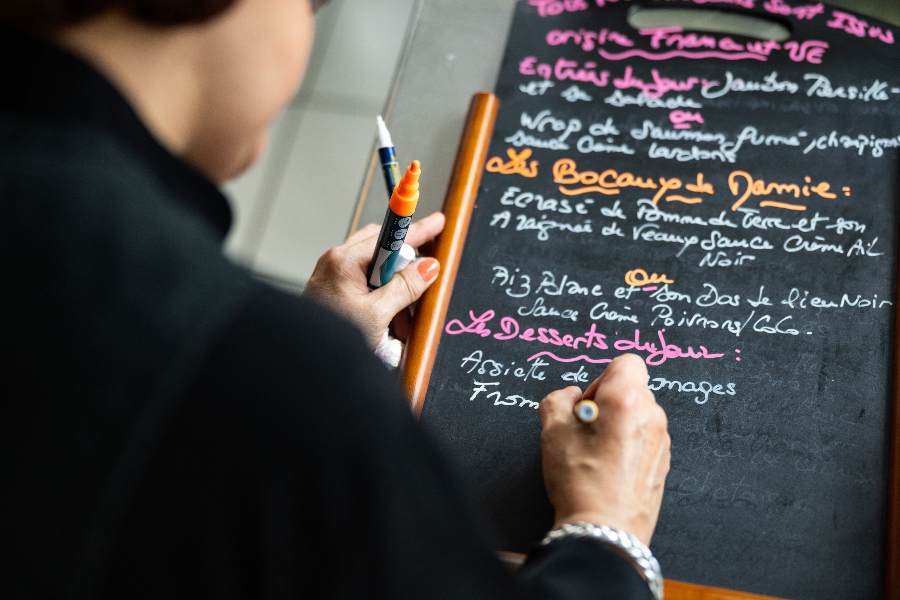 Tous sont Issus
origine France et UE
Entrées du Jour: Jambon Persillé
et sa salade
ou
Wrap de Saumon fumé, champign
sauce Crème lardons
Les Bocaux de Mamie:
Ecrasé de Pomme de Terre et son
Araignée de Veau Sauce Crème Ail
Noir
ou
Riz Blanc et son Dos de lieu Noir
Sauce Crème Poivrons/Coco.
Les Desserts du Jour:
Assiette de omages
From